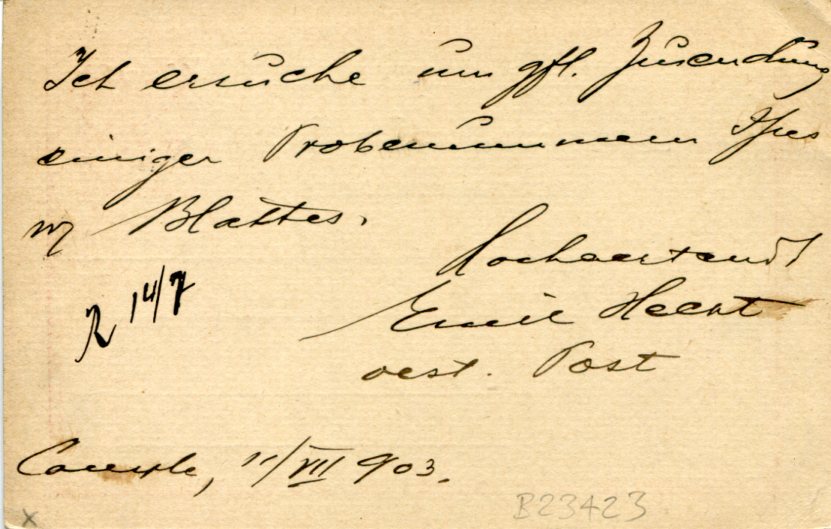 Ich ersuche um gfl. Zusendung
einiger Probenummern Ihres
w. Blattes.
Hochachtend
Emil Hecht
oest. Post
R 14/7
11/VII 903.
B23423
x